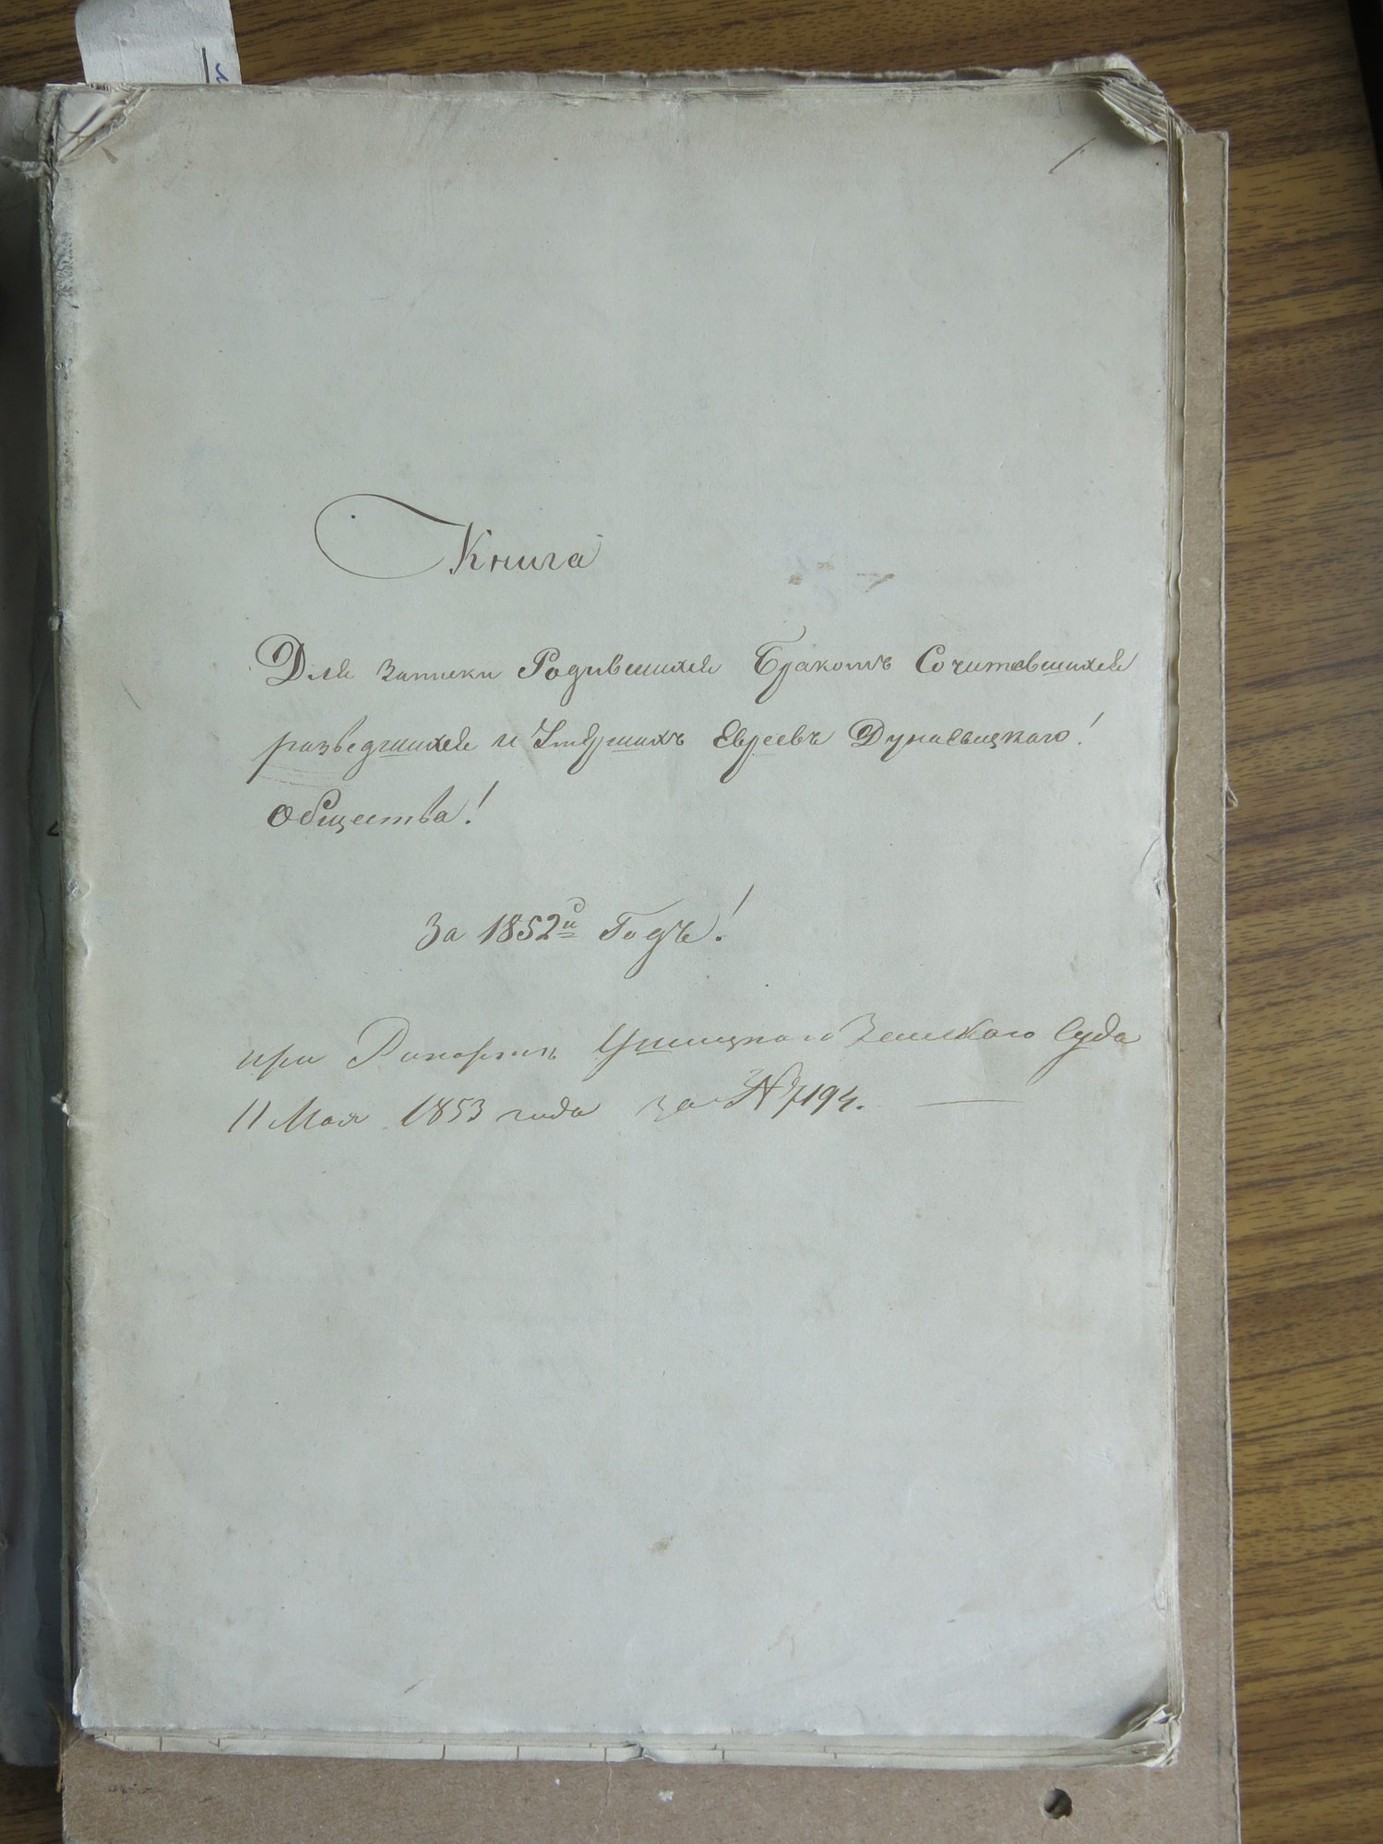 Книга
Для записки Родившихся Бракомъ Сочитавшихся
разведшихся и Умершихъ Евреевъ Дунаевецкаго!
Общества!
За 1852й Годъ!
при Рапортѣ Ушицкаго Земскаго Суда
11 Мая 1853 года за № 7194.